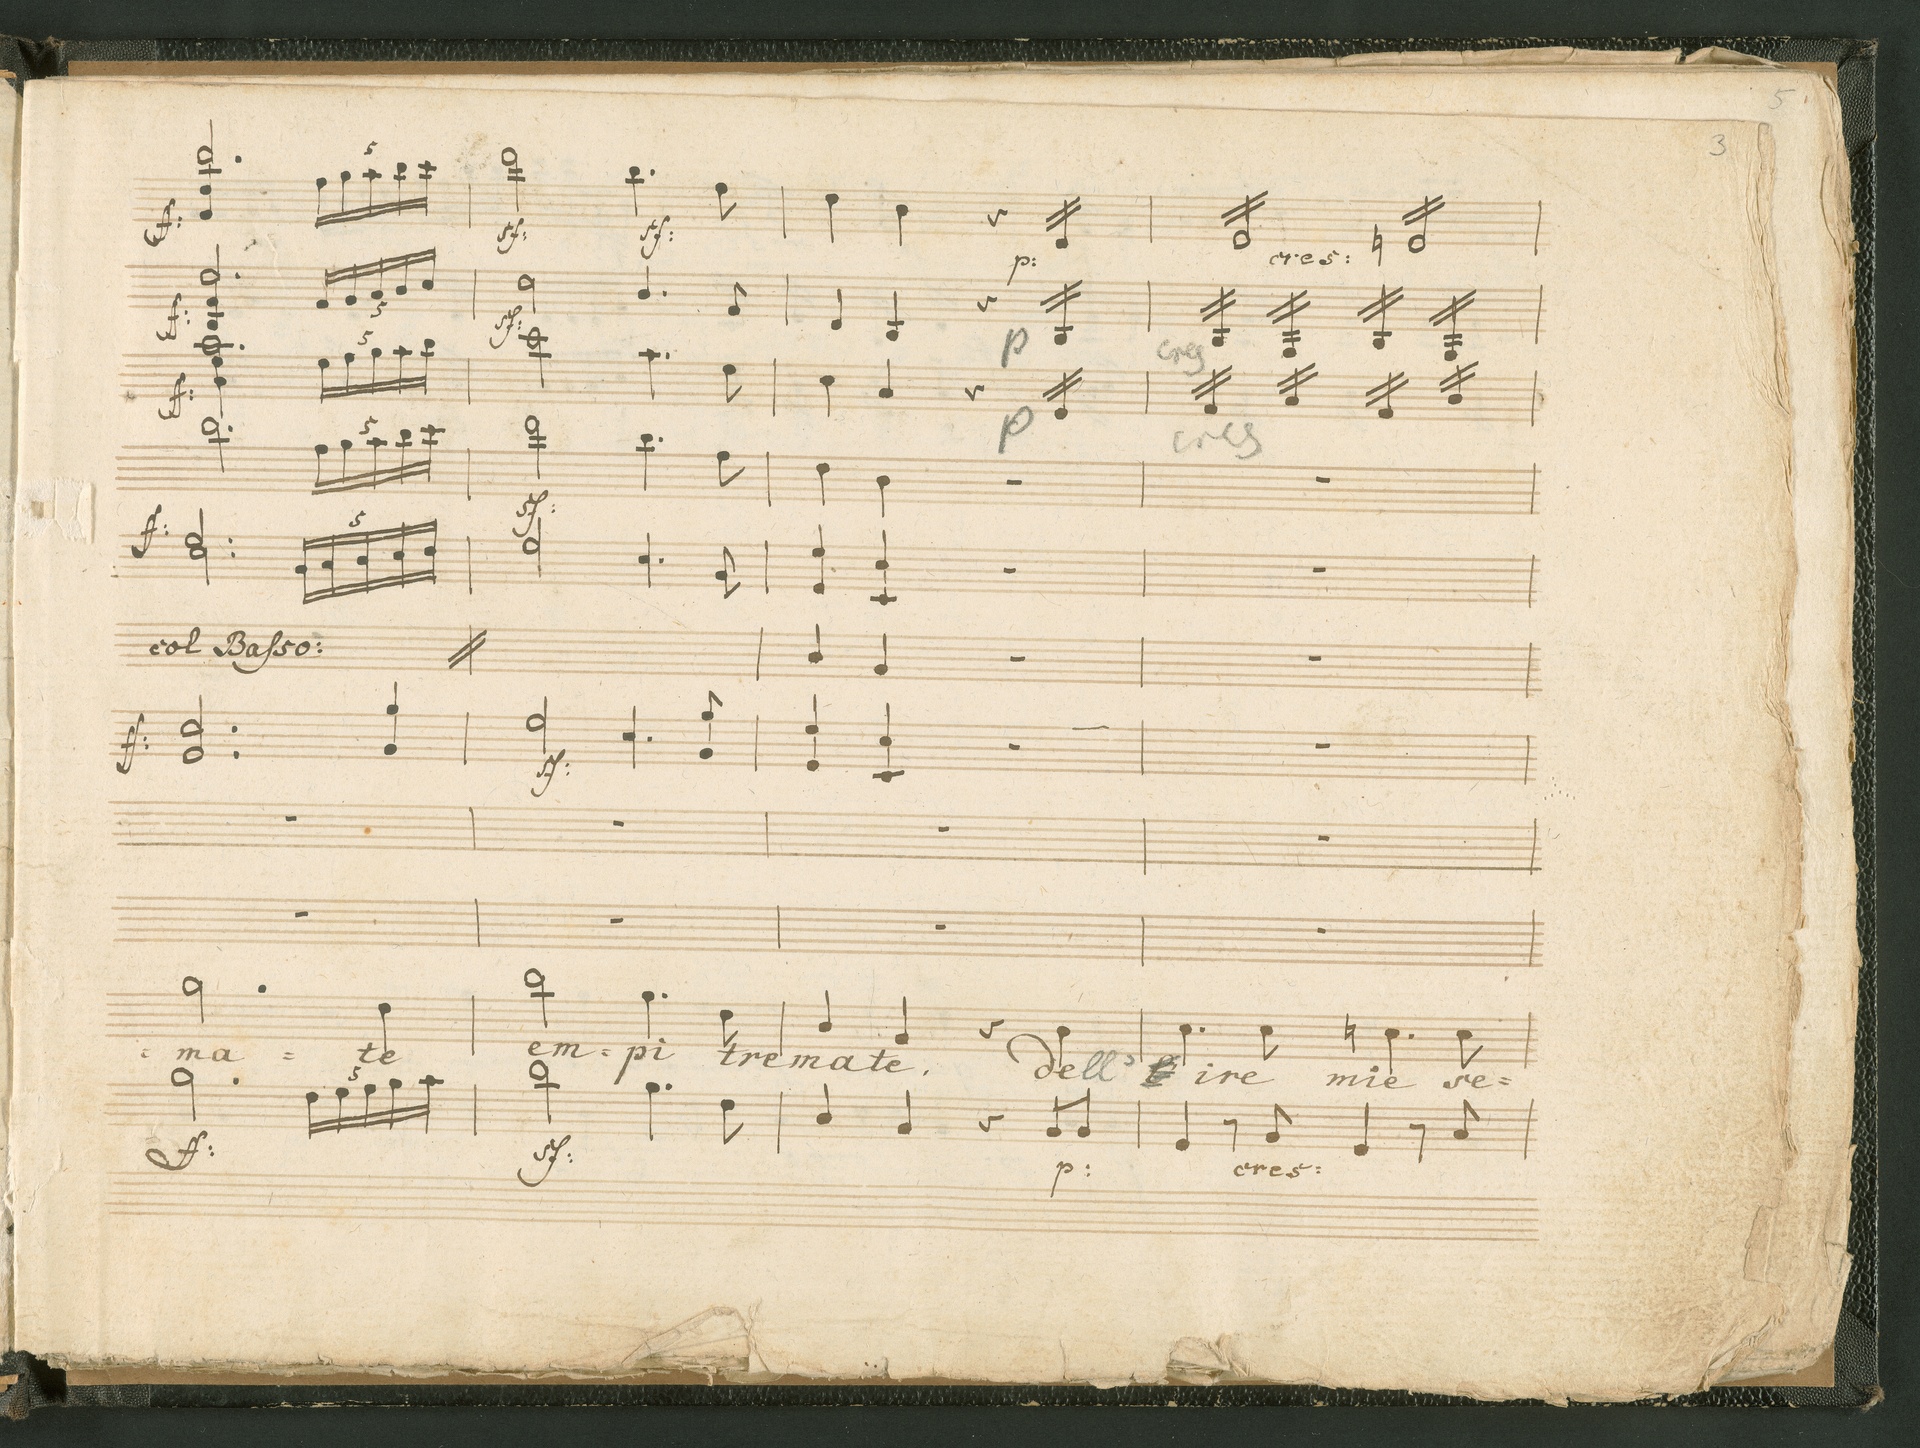 5
3
5
ff: sf: sf: p: cres:
5
ff: sf: p cres
5
ff: p cres
5
sf:
5
ff:
col Basso:
ff: sf:
= ma = te em = pi tremate. dell' ire mie se=
5
ff: sf: p: cres: